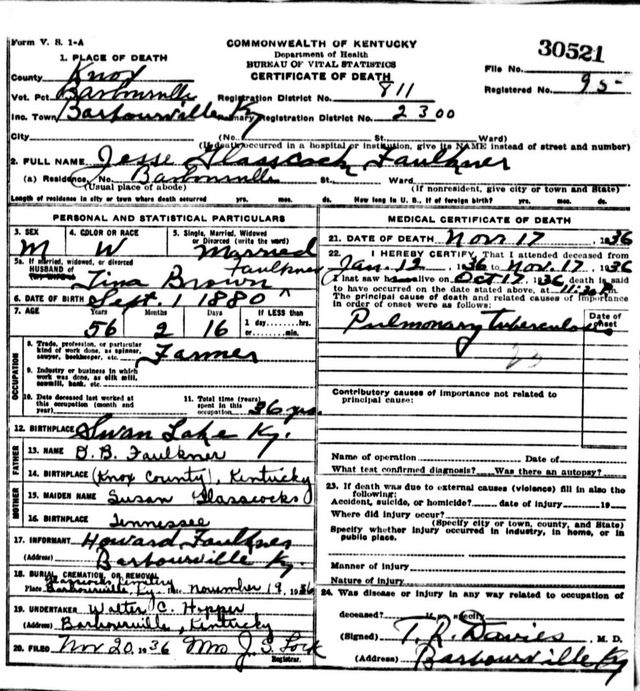 Form V. S. 1-A
COMMONWEALTH OF KENTUCKY
Department of Health
BUREAU OF VITAL STATISTICS
CERTIFICATE OF DEATH
File No. 30521
Registered No. 95-
1. PLACE OF DEATH
County Knox
Vot. Pct Barbourville Registration District No. 811
Inc. Town Barbourville Ky Primary Registration District No. 2300
City (No. St. Ward)
(If death occurred in a hospital or institution, give its NAME instead of street and number)
2. FULL NAME Jesse Glasscock Faulkner
(a) Residence, No. Barbourville St. Ward
(Usual place of abode) (If nonresident, give city or town and State)
Length of residence in city or town where death occurred yrs. mos. ds. How long in U. S., if of foreign birth? yrs. mos. ds.
PERSONAL AND STATISTICAL PARTICULARS
3. SEX M
4. COLOR OR RACE W
5. Single, Married, Widowed or Divorced (write the word) Married
5a. If married, widowed, or divorced
HUSBAND of Tina Brown Faulkner
6. DATE OF BIRTH Sept. 1 1880
7. AGE Years 56 Months 2 Days 16 If LESS than 1 day hrs. or min.
OCCUPATION
8. Trade, profession, or particular kind of work done, as spinner, sawyer, bookkeeper, etc. Farmer
9. Industry or business in which work was done, as silk mill, sawmill, bank, etc.
10. Date deceased last worked at this occupation (month and year)
11. Total time (years) spent in this occupation 36 yrs.
12. BIRTHPLACE Swan Lake Ky.
FATHER
13. NAME D. B. Faulkner
14. BIRTHPLACE (Knox County), Kentucky
MOTHER
15. MAIDEN NAME Susan Glasscocks
16. BIRTHPLACE Tennessee
17. INFORMANT Howard Faulkner
(Address) Barbourville Ky.
18. BURIAL, CREMATION, OR REMOVAL
Cemetery
Place Barbourville, Ky. Date November 19, 1936
19. UNDERTAKER Walter C. Hopper
(Address) Barbourville, Kentucky
20. FILED Nov 20 1936 Mrs J. S. Lock
Registrar.
MEDICAL CERTIFICATE OF DEATH
21. DATE OF DEATH Nov 17 1936
22. I HEREBY CERTIFY, That I attended deceased from
Jan. 12 1936 to Nov. 17 1936
I last saw h alive on Oct 17 1936 death is said
to have occurred on the date stated above, at 11:30 m.
The principal cause of death and related causes of importance
in order of onset were as follows:
Date of onset
Pulmonary Tuberculosis
Contributory causes of importance not related to
principal cause:
Name of operation Date of
What test confirmed diagnosis? Was there an autopsy?
23. If death was due to external causes (violence) fill in also the
following:
Accident, suicide, or homicide? date of injury 19
Where did injury occur?
(Specify city or town, county, and State)
Specify whether injury occurred in industry, in home, or in
public place.
Manner of injury
Nature of injury
24. Was disease or injury in any way related to occupation of
deceased? If so, specify
(Signed) T. R. Davies M. D.
(Address) Barbourville Ky